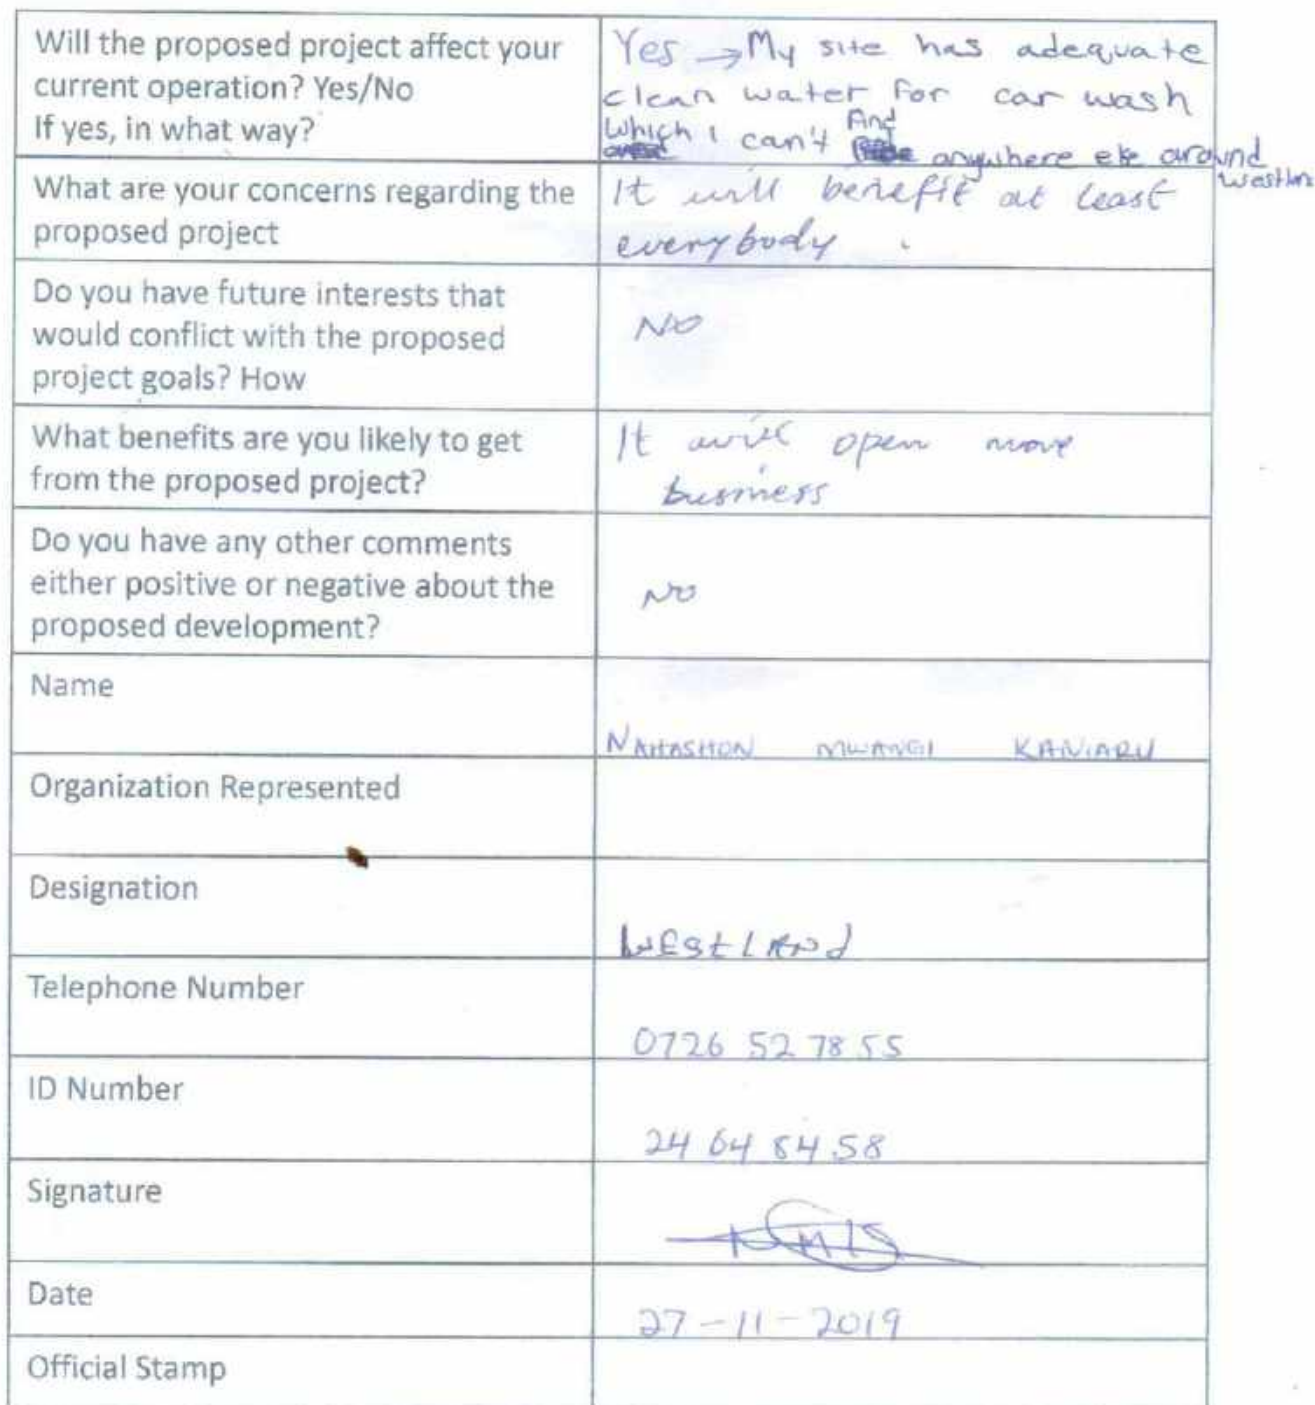 Will the proposed project affect your
current operation? Yes/No
If yes, in what way?
Yes → My site has adequate
clean water for car wash
which I can't find anywhere else around
What are your concerns regarding the
proposed project
It will benefit at least
everybody.
Do you have future interests that
would conflict with the proposed
project goals? How
NO
What benefits are you likely to get
from the proposed project?
It will open more
business
Do you have any other comments
either positive or negative about the
proposed development?
NO
Name
NAHASHON MWANGI KANIARU
Organization Represented
Designation
WEStLANd
Telephone Number
0726 52 78 55
ID Number
24 64 84 58
Signature
Date
27-11-2019
Official Stamp